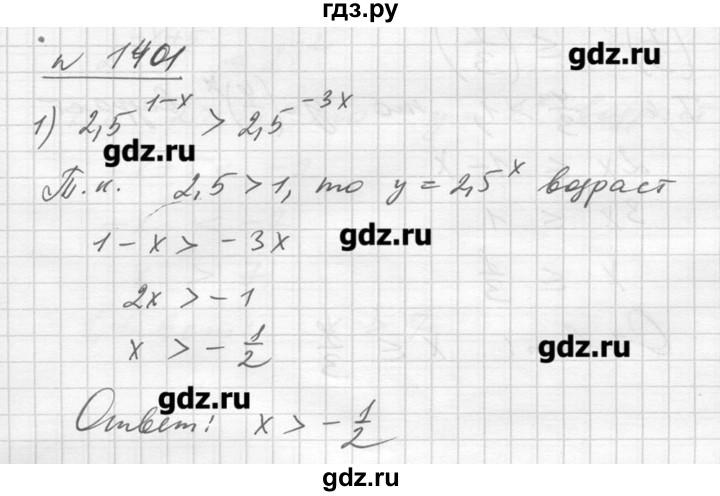 гдз.ру
№ 1401
gdz.ru
1) 2,5^(1-x) > 2,5^(-3x)
gdz.ru
Т.к. 2,5 > 1, то y = 2,5^x возраст
1 - x > - 3x
gdz.ru
2x > - 1
x > - 1/2
gdz.ru
gdz.ru
Ответ: x > - 1/2
gdz.ru